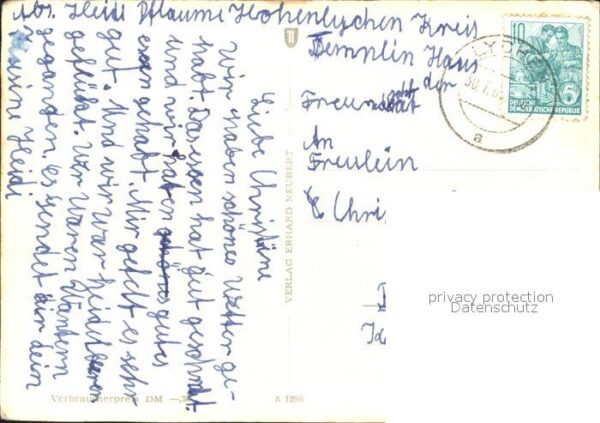 Abs. Heidi Pflaume Hohenlychen Kreis
Templin Haus
der
Freundschaft
An
Freulein
Chris
Liebe Christine
Wir haben schönes Wetter ge-
habt. Das essen hat gut geschmekt.
und wir haben schönes gutes
essen gehabt. Mir gefelt es sehr
gut. Und wir war heidelberen
geflükt. Wir waren Wantern
gegangen. es sendet dir dein
Heidi
VERLAG ERHARD NEUBERT
Verbraucherpreis DM
A 1286
LYCHEN
a
10
DEUTSCHE
DEMOKRATISCHE REPUBLIK
privacy protection
Datenschutz